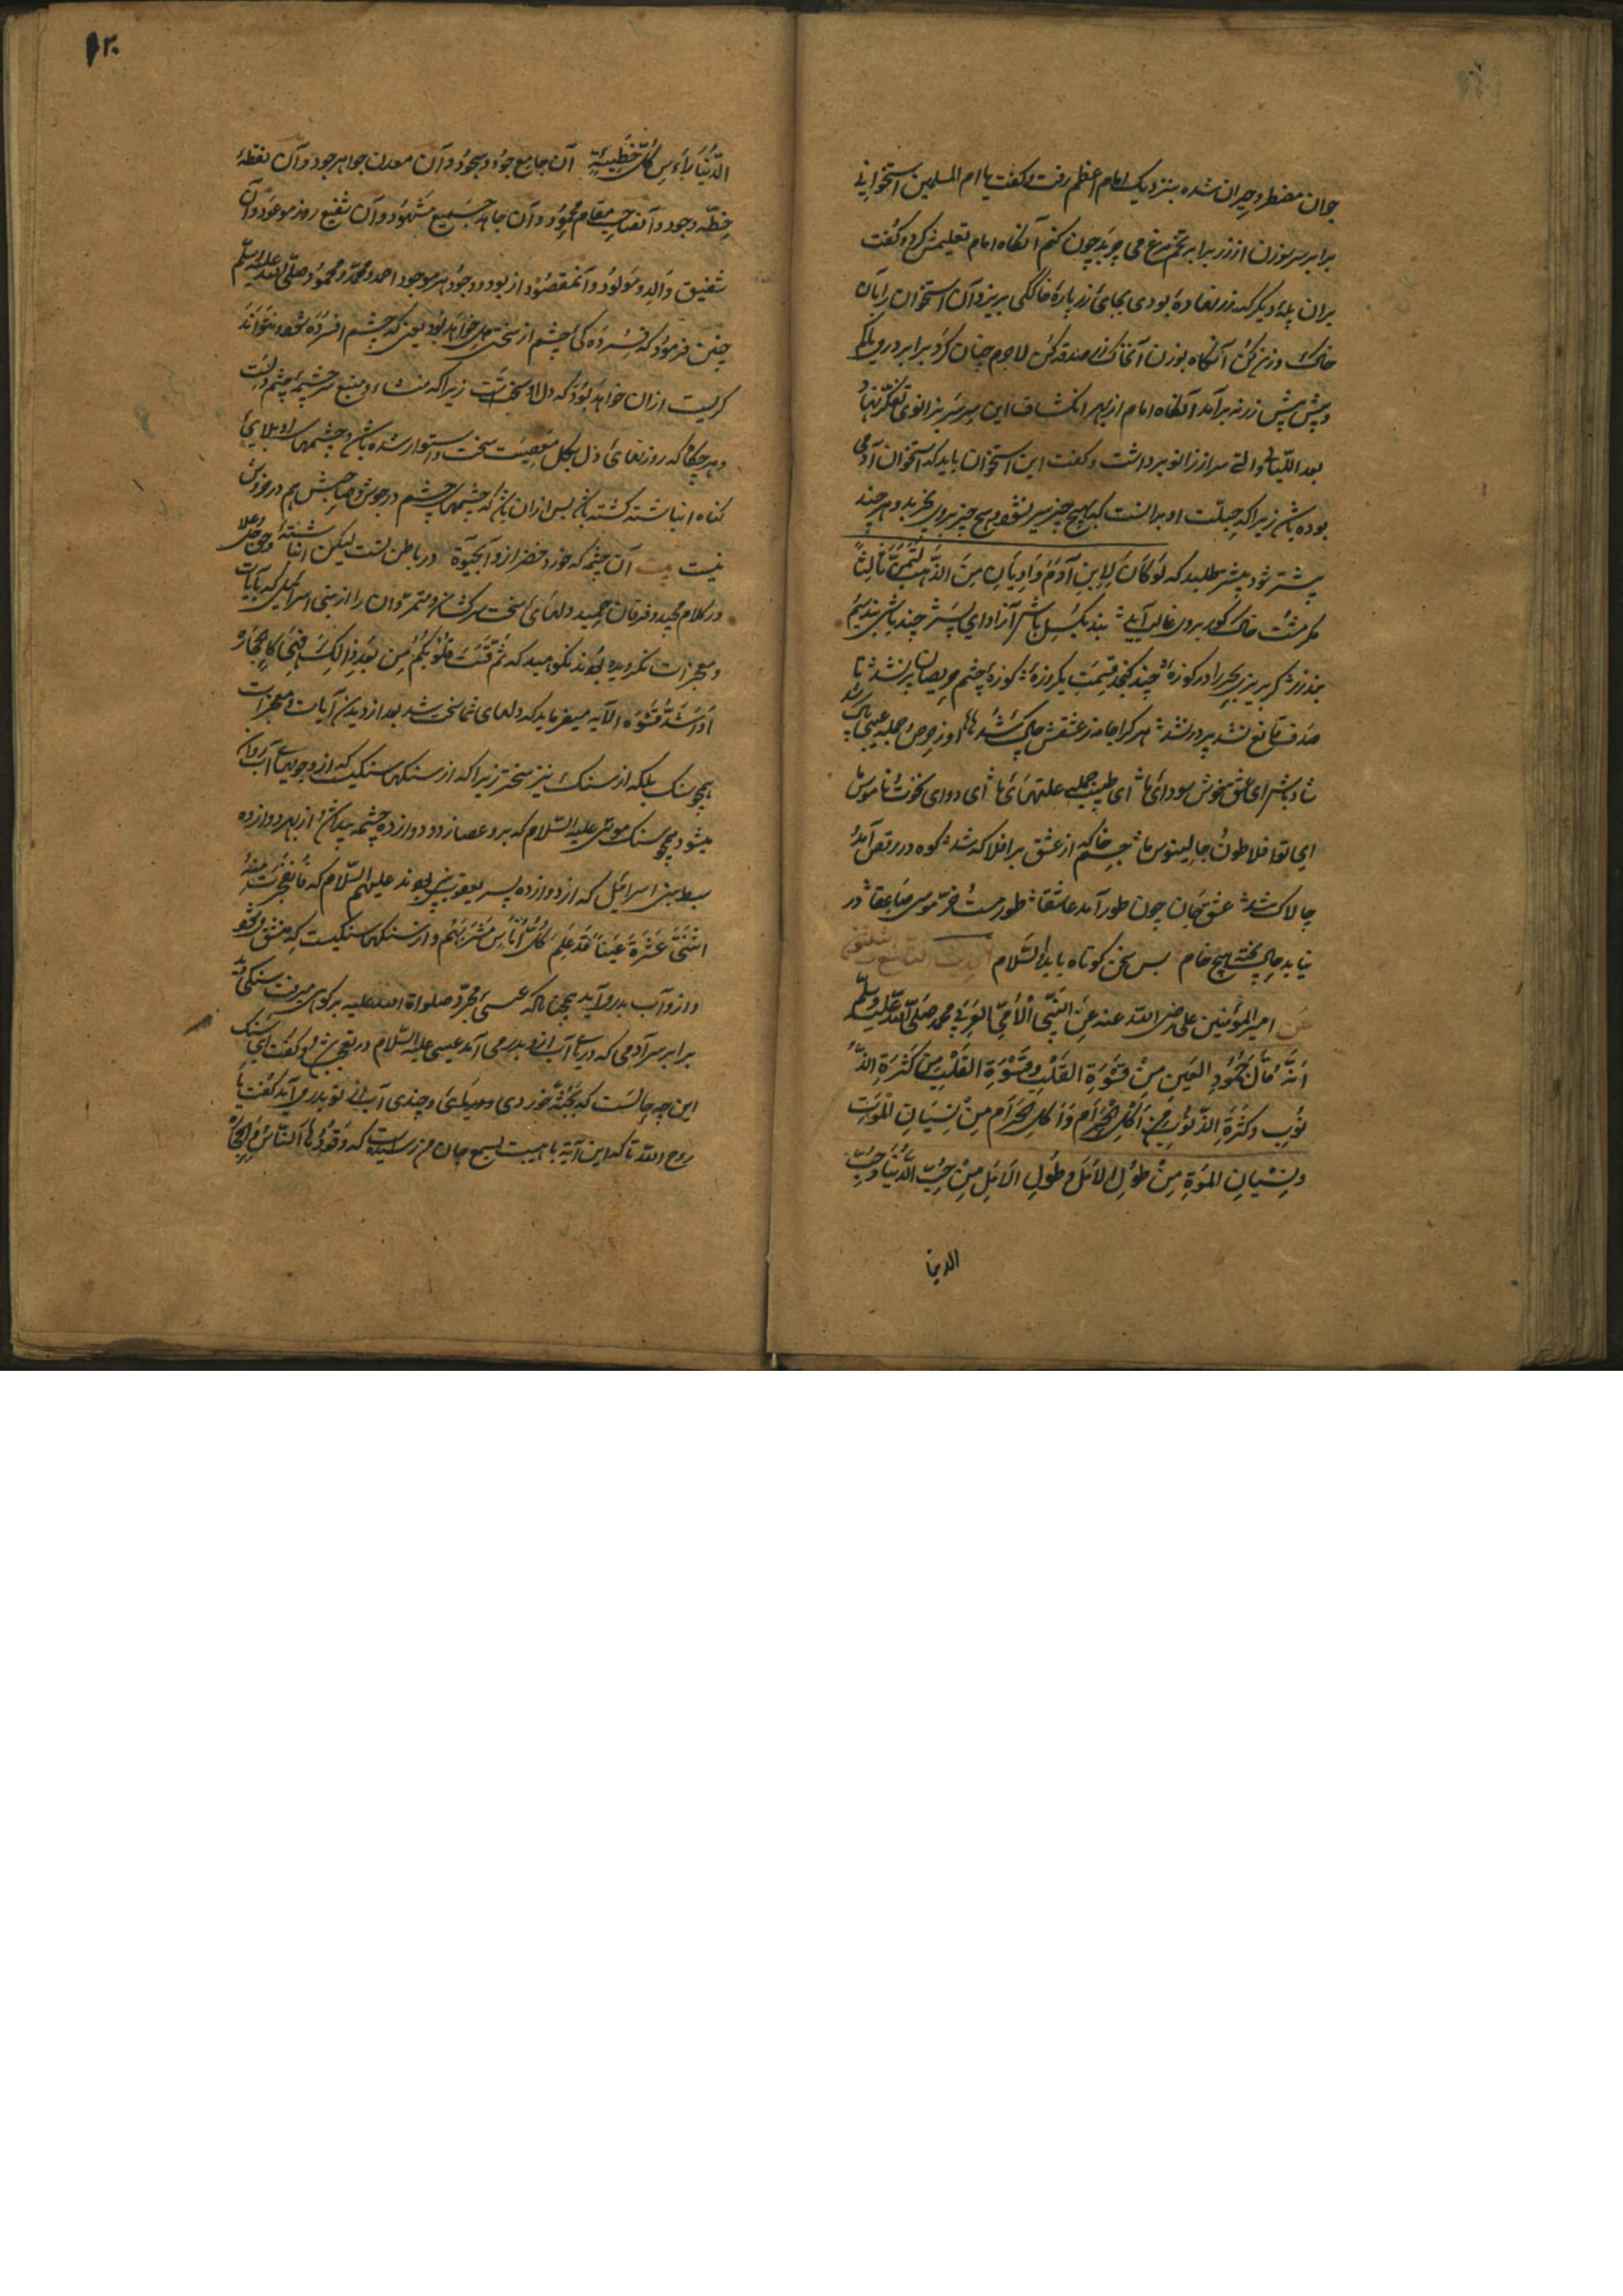 جوان مضطر و حیران شده بنزدیک امام اعظم رفت و گفت یا امام المسلمین استخوانی
برابر سر سوزن از زر برابر تخم مرغ می چربد چون کنم آنگاه امام تعلیمش کرد و گفت
بران پلهٔ دیگر که زر نهاده بودی بجای زر پارهٔ خاکی بریز و آن استخوان را بآن
خاک وزن کن آنگاه بوزن آن خاک زر صدقه کن لاجرم چنان کرد برابر در
و پیش امام از بهر انکشاف این سر سر بزانوی تفکر نهاد
بعد اللتیا والتی سر از زانو برداشت و گفت این استخوان باید که استخوان آدمی
بوده باشد زیرا که جبلت او برانست که بهیچ چیز سیر نشود و هیچ چیز بروی نچربد و هر چند
بیشتر شود بیشتر طلبد که لو کان لابن آدم وادیان من الذهب لتمنی ثالثا
مگر مشت خاک گور بروی غالب آید بند بگسل باش آزاد ای پسر چند باشی بند سیم
بند زر گر بریزی بحر را در کوزهٔ چند گنجد قسمت یکروزهٔ کوزهٔ چشم حریصان پر نشد تا
صدف قانع نشد پر در نشد هر کرا جامه ز عشقش چاک شد او ز حرص و جمله عیبی پاک شد
شاد باش ای عشق خوش سودای ما ای طبیب جمله علتهای ما ای دوای نخوت و ناموس ما
ای تو افلاطون و جالینوس ما جسم خاک از عشق بر افلاک شد کوه در رقص آمد و
چالاک شد عشق جان چون طور آمد عاشقا طور مست و خر موسی صاعقا در
نیابد حال پخته هیچ خام بس سخن کوتاه باید والسلام
عن امیر المؤمنین علی رضی الله عنه عن النبی الامی العربی محمد صلی الله علیه وسلم
انه قال جمود العین من قسوة القلب وقسوة القلب من کثرة الذ
نوب وکثرة الذنوب من اکل الحرام واکل الحرام من نسیان الموت
ونسیان الموة من طول الامل وطول الامل من حب الدنیا وحب
الدنیا
۱۲۰
الدنیا رأس کل خطیئة آن جامع جود و سجود و آن معدن جواهر جود و آن نقطهٔ
خطهٔ وجود و آن صاحب مقام محمود و آن جاهد جمیع مشهود و آن شفیع روز موعود و آن
شفیق والد و مولود و آن مقصود از بود و وجود هر موجود احمد و محمد و محمود صلی الله علیه وسلم
چنین فرمود که فسردهکی چشم از سختی دل خواهد بود یعنی که چشم افسرده شود و نتواند
گریست ازان خواهد بود که دل او سختست زیرا که منشاء و منبع سرچشمهٔ چشم دلست
و هرگاه که روزنهای دل بگل معصیت سخت و استوار شده باشد و چشمهای او بلای
گناه انباشته گشته باشد پس ازان باشد که چشمهای چشم در جوش و صاحبش هم در خروش
نیست بیت آن چشمه که خورد خضر ازو آبحیوة در باطن تست لیکن انباشتهٔ وحق جل وعلا
در کلام مجید و فرقان حمید دلهای سخت سرکشان و متمردان را از بنی اسرائیل که بآیات
و معجزات نگرویده بودند نکوهید که ثم قست قلوبکم من بعد ذلک فهی کالحجارة
او اشد قسوة الآیه میفرماید که دلهای شما سخت شد بعد از دیدن آیات و معجزات
همچو سنگ بلکه از سنگ نیز سختر زیرا که از سنگها سنگیست که ازو جویهای آب روان
میشود همچو سنگ موسی علیه السلام که برو عصا زد و دوازده چشمه پیدا شد از بهر دوازده
سبط بنی اسرائیل که از دوازده پسر یعقوب پیغمبر بودند علیهم السلام که فانفجرت منه
اثنتا عشرة عینا قد علم کل اناس مشربهم و از سنگها سنگیست که منشق شود
و ازو آب بدر آید چنانکه عیسی مجرد صلواة الله علیه بر کوهی میرفت سنگی دید
برابر سر آدمی که دریای آب ازو بدر می آمد عیسی علیه السلام در تعجب شد و گفت ای سنگ
این چه حالست که بجثه خوردی و دریای و چندی آب از تو بدر می آید گفت یا
روح الله تا که این آیة با هیبت بسمع جان من رسیده است که وقودها الناس والحجارة